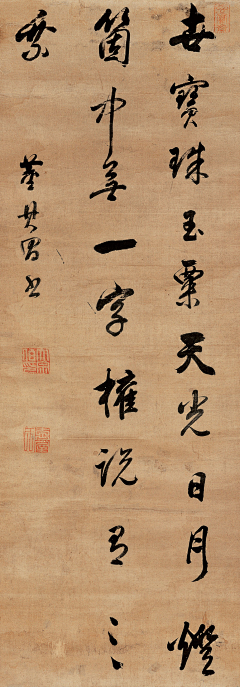 世寶珠玉粟天光日月燈
箇中無一字權說有三
乘
董其昌書